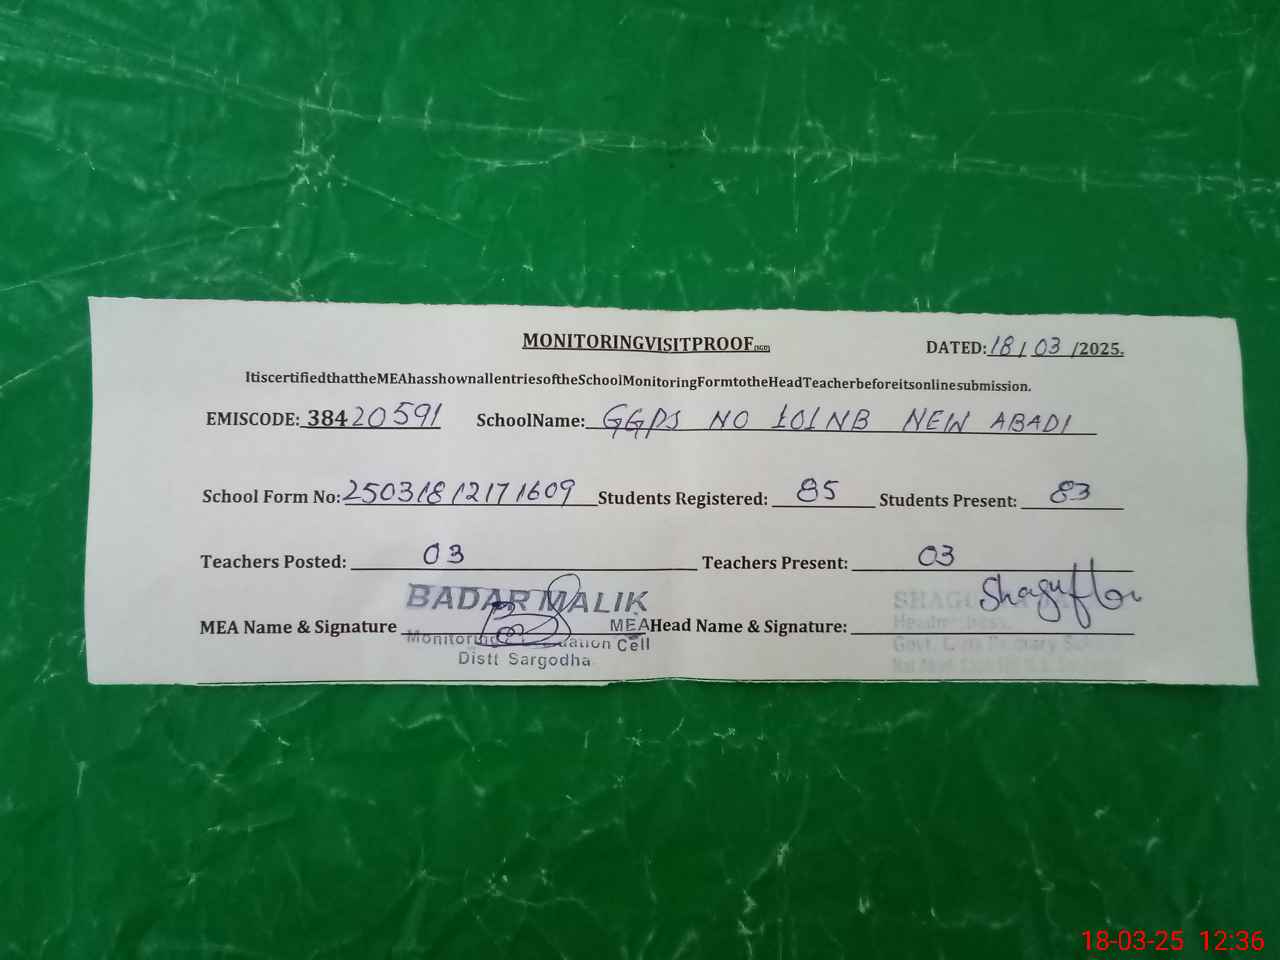 MONITORINGVISITPROOF(SGD) DATED: 18 / 03 /2025.
ItiscertifiedthattheMEAhasshownallentriesoftheSchoolMonitoringFormtotheHeadTeacherbeforeitsonlinesubmission.
EMISCODE: 38420591 SchoolName: GGPS NO 101NB NEW ABADI
School Form No: 25031812171609 Students Registered: 85 Students Present: 83
Teachers Posted: 03 Teachers Present: 03
BADAR MALIK Shagufta
MEA Name & Signature MEA Head Name & Signature:
Cell
Distt Sargodha
18-03-25 12:36